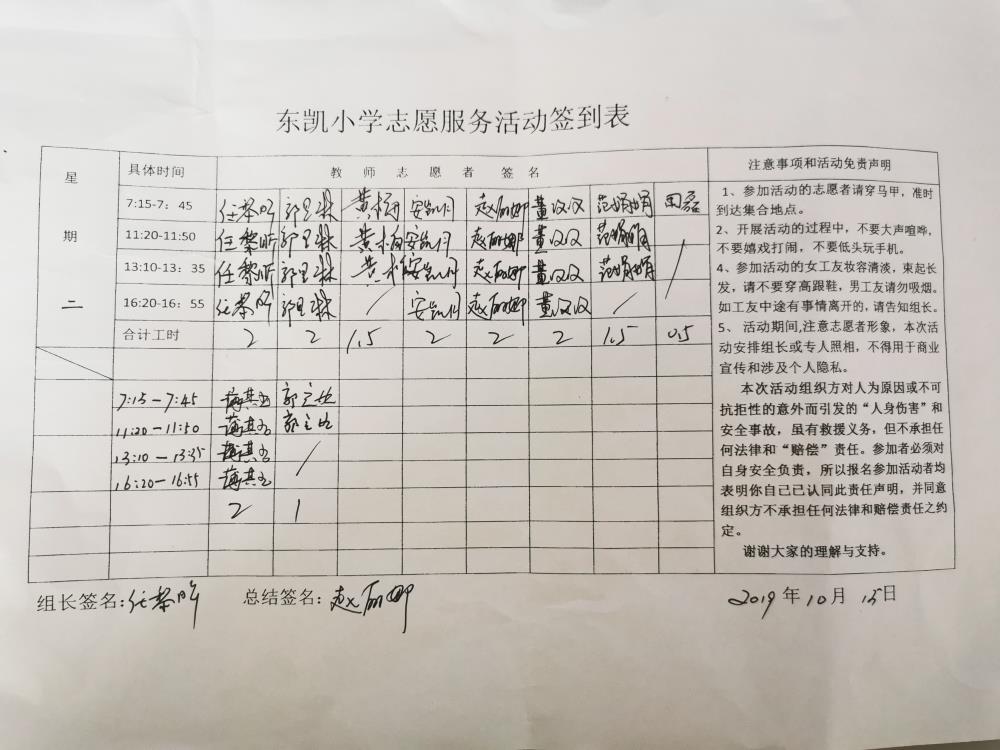 东凯小学志愿服务活动签到表
星期二
具体时间 教师志愿者签名 注意事项和活动免责声明
7:15-7：45 任黎昕 安凯月 赵丽娜 董汉汉 范娟娟 田磊
11:20-11:50 任黎昕 安凯月 赵丽娜 董汉汉 范娟娟 /
13:10-13：35 任黎昕 安凯月 赵丽娜 董汉汉 范娟娟
16:20-16：55 任黎昕 / 安凯月 赵丽娜 董汉汉 /
合计工时 2 2 1.5 2 2 2 1.5 0.5
7:15-7:45
11:20-11:50
13:10-13:35 /
16:20-16:55
2 1
1、参加活动的志愿者请穿马甲，准时
到达集合地点。
2、开展活动的过程中，不要大声喧哗，
不要嬉戏打闹，不要低头玩手机。
4、参加活动的女工友妆容清淡，束起长
发，请不要穿高跟鞋，男工友请勿吸烟。
如工友中途有事情离开的,请告知组长。
5、活动期间,注意志愿者形象，本次活
动安排组长或专人照相，不得用于商业
宣传和涉及个人隐私。
本次活动组织方对人为原因或不可
抗拒性的意外而引发的“人身伤害”和
安全事故，虽有救援义务，但不承担任
何法律和“赔偿”责任。参加者必须对
自身安全负责，所以报名参加活动者均
表明你自己已认同此责任声明，并同意
组织方不承担任何法律和赔偿责任之约
定。
谢谢大家的理解与支持。
组长签名:任黎昕 总结签名：赵丽娜 2019年10月15日